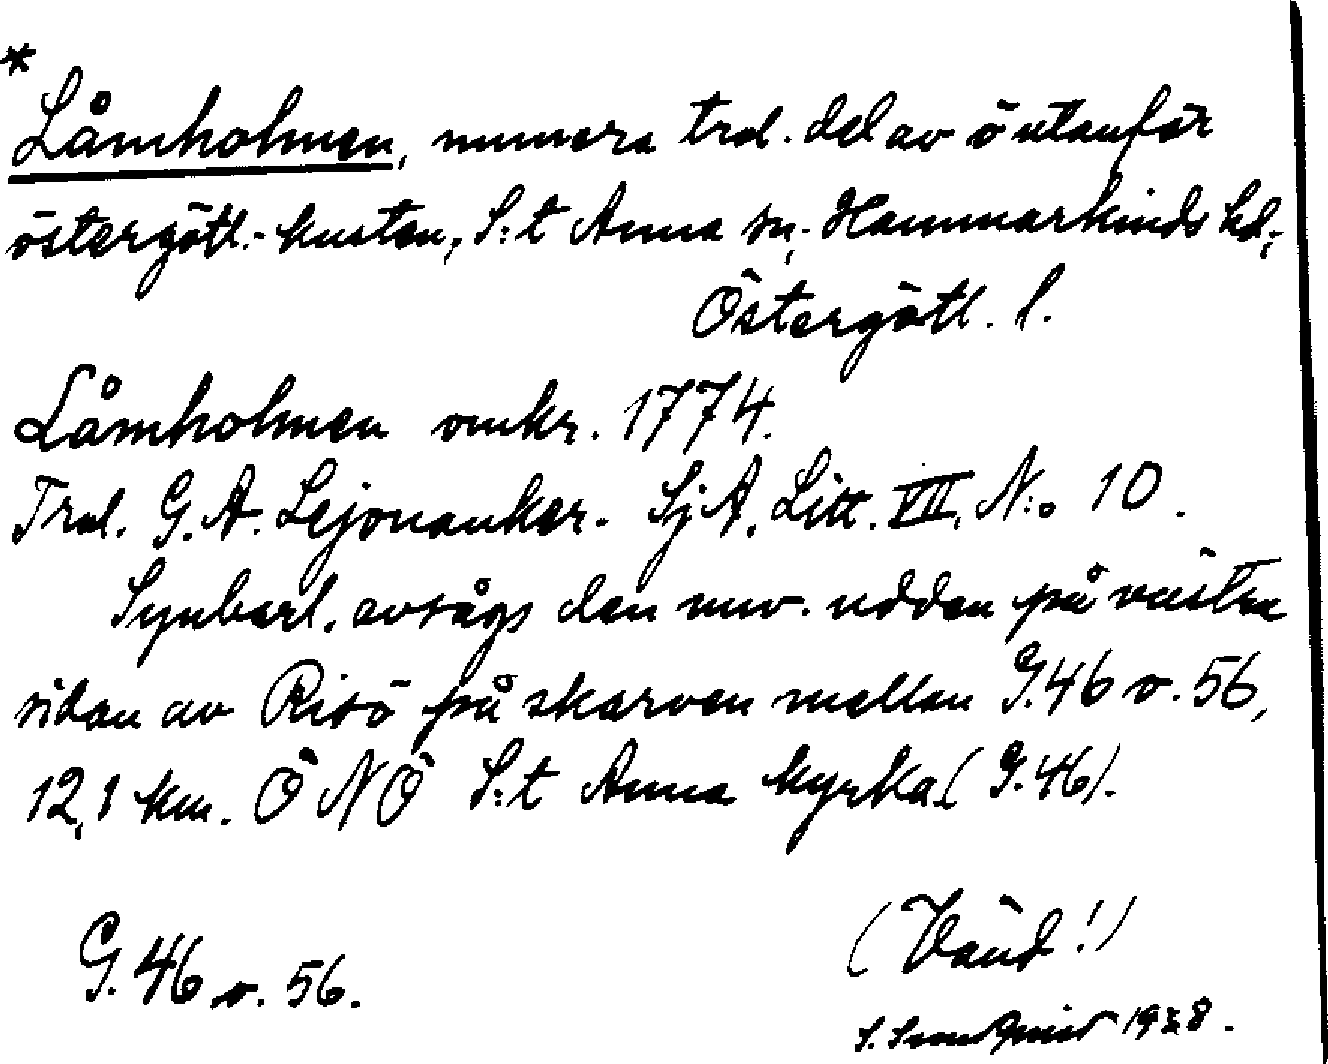 *
Låmholmen, numera trol. del av ö utanför
östergötl.-kusten, S:t Anna sn, Hammarkinds hd,
Östergötl. l.
Låmholmen omkr. 1774.
Trol. G. A. Lejonanker. SjA. Litt. VII, N:o 10.
Synbarl. avsågs den nuv. udden på västra
sidan av Risö på skarven mellan G.46 o. 56,
12,1 km. ÖNÖ S:t Anna kyrka (G.46).
G. 46 o. 56.
(Vänd!)
S.